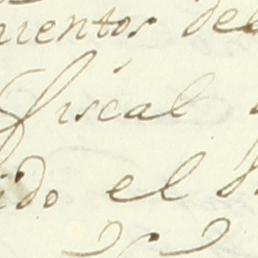 uientos de
fiscal
ido el